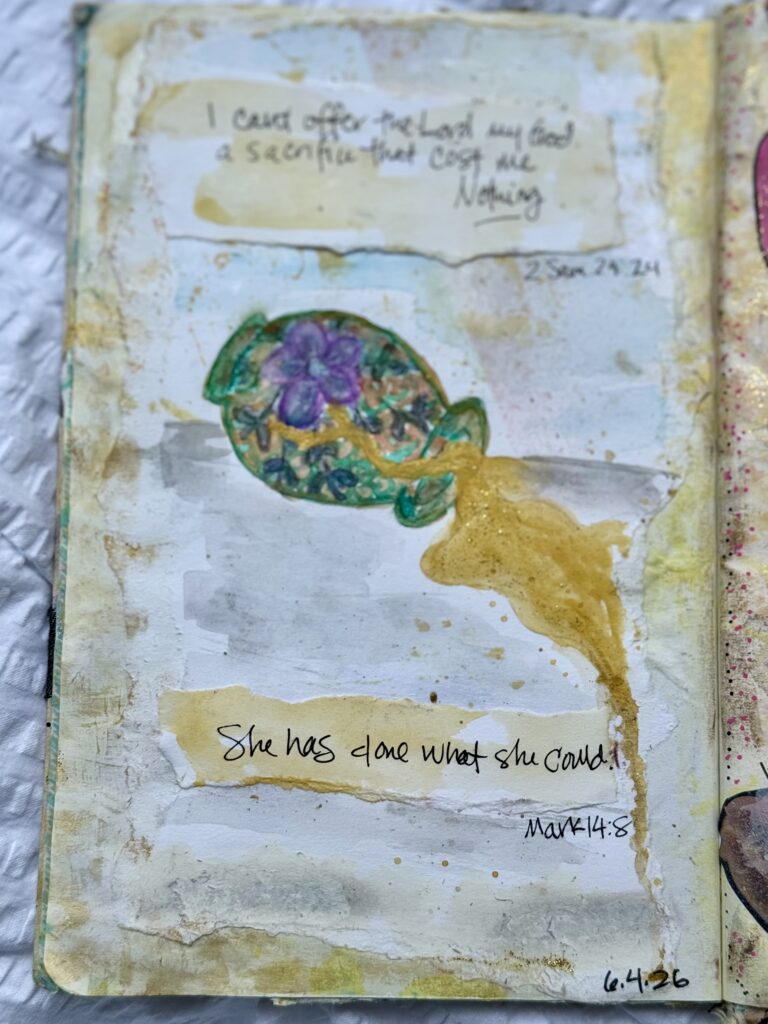 I can't offer the Lord my God
a sacrifice that cost me
Nothing
2 Sam. 24:24
She has done what she could.
Mark 14:8
6.4.26